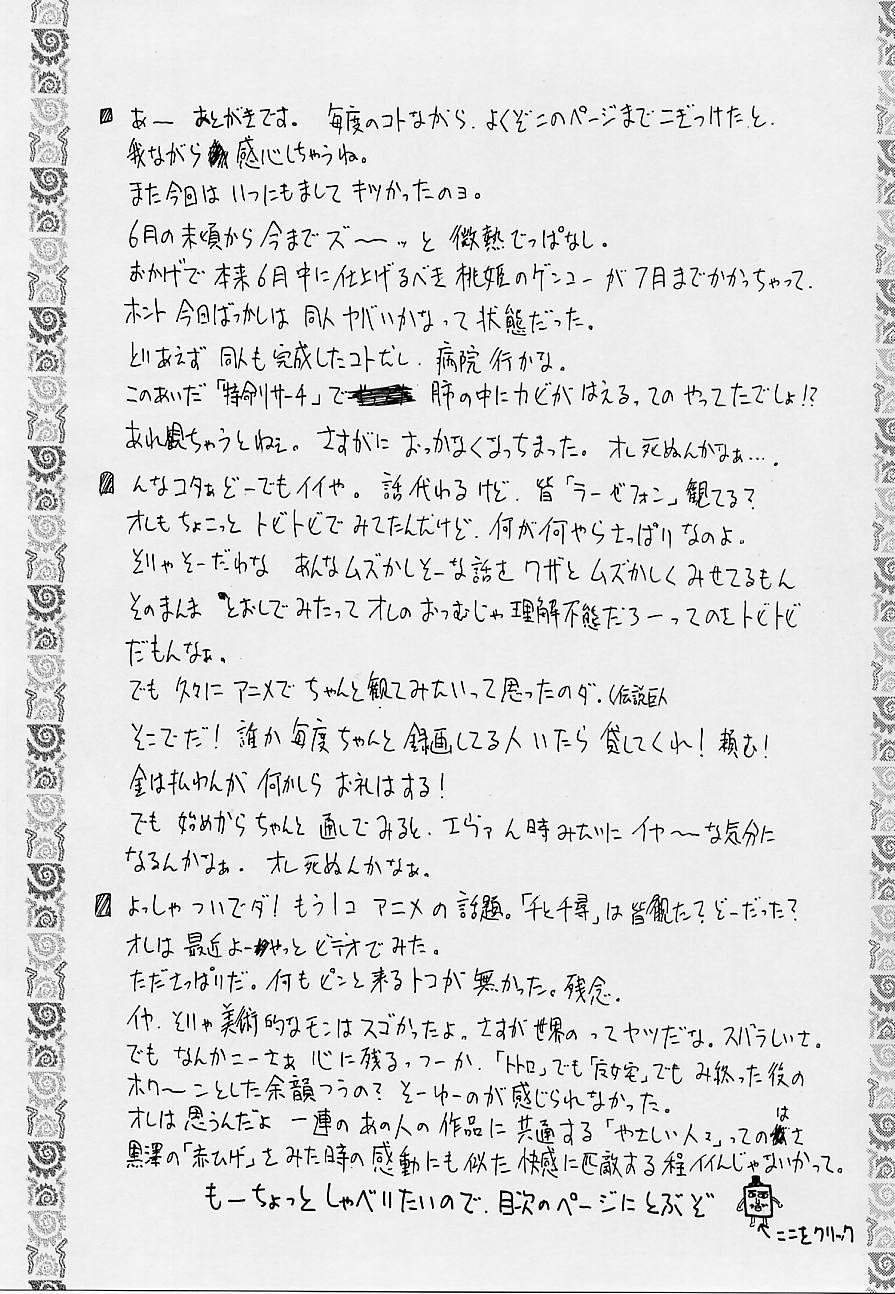 あー あとがきです。 毎度のコトながら、よくぞこのページまでこぎつけたと、
我ながら 感心しちゃうね。
また今回は いつにもまして キツかったのョ。
6月の末頃から 今まで ズ〜〜ッと 微熱でっぱなし。
おかげで本来6月中に仕上げるべき 桃姫のゲンコーが 7月までかかっちゃって、
ホント 今回ばっかしは 同人 ヤバいかなって 状態だった。
とりあえず 同人も 完成したコトだし、病院 行かな。
このあいだ「特命リサーチ」で 肺の中にカビがはえるっての やってたでしょ!?
あれ観ちゃうとねぇ。さすがに おっかなくなっちまった。 オレ死ぬんかなぁ….
んなコタぁ どーでもイイや。話代わるけど、皆「ラーゼフォン」観てる?
オレもちょこっと トビトビで みてたんだけど、何が何やらさっぱりなのよ。
そりゃそーだわな あんなムズかしそーな話を ワザと ムズかしく みせてるもん
そのまんま とおしでみたって オレのおつむじゃ 理解不態だろーってのをトビトビ
だもんなぁ。
でも 久々に アニメで ちゃんと観てみたいって思ったのダ。(伝説巨人
そこでだ!誰か 毎度ちゃんと 録画してる人 いたら 貸してくれ!頼む!
金は払わんが 何かしら お礼はする!
でも 始めからちゃんと 通しでみると、エヴァん時みたいに イヤ〜〜な気分に
なるんかなぁ。 オレ死ぬんかなぁ。
よっしゃ ついでダ!もう1コ アニメの話題。「千と千尋」は皆観た?どーだった?
オレは 最近 よーやっと ビデオでみた。
たださっぱりだ。何もピンと来るトコが 無かった。残念.
イヤ、そりゃ美術的なモンはスゴかったよ。さすが世界の ってヤツだな。スバラしいさ。
でも なんかこーさぁ 心に残るっつーか、「トトロ」でも「魔女宅」でも み終った後の
ホワ〜ンとした余韻つうの? そーゆーのが感じられなかった。
オレは思うんだよ 一連のあの人の作品に 共通する「やさしい人々」っての はさ
黒澤の「赤ひげ」をみた時の感動にも似た 快感に匹敵する程イイんじゃないかって。
もーちょっと しゃべりたいので、目次のページに とぶぞ
ここをクリック